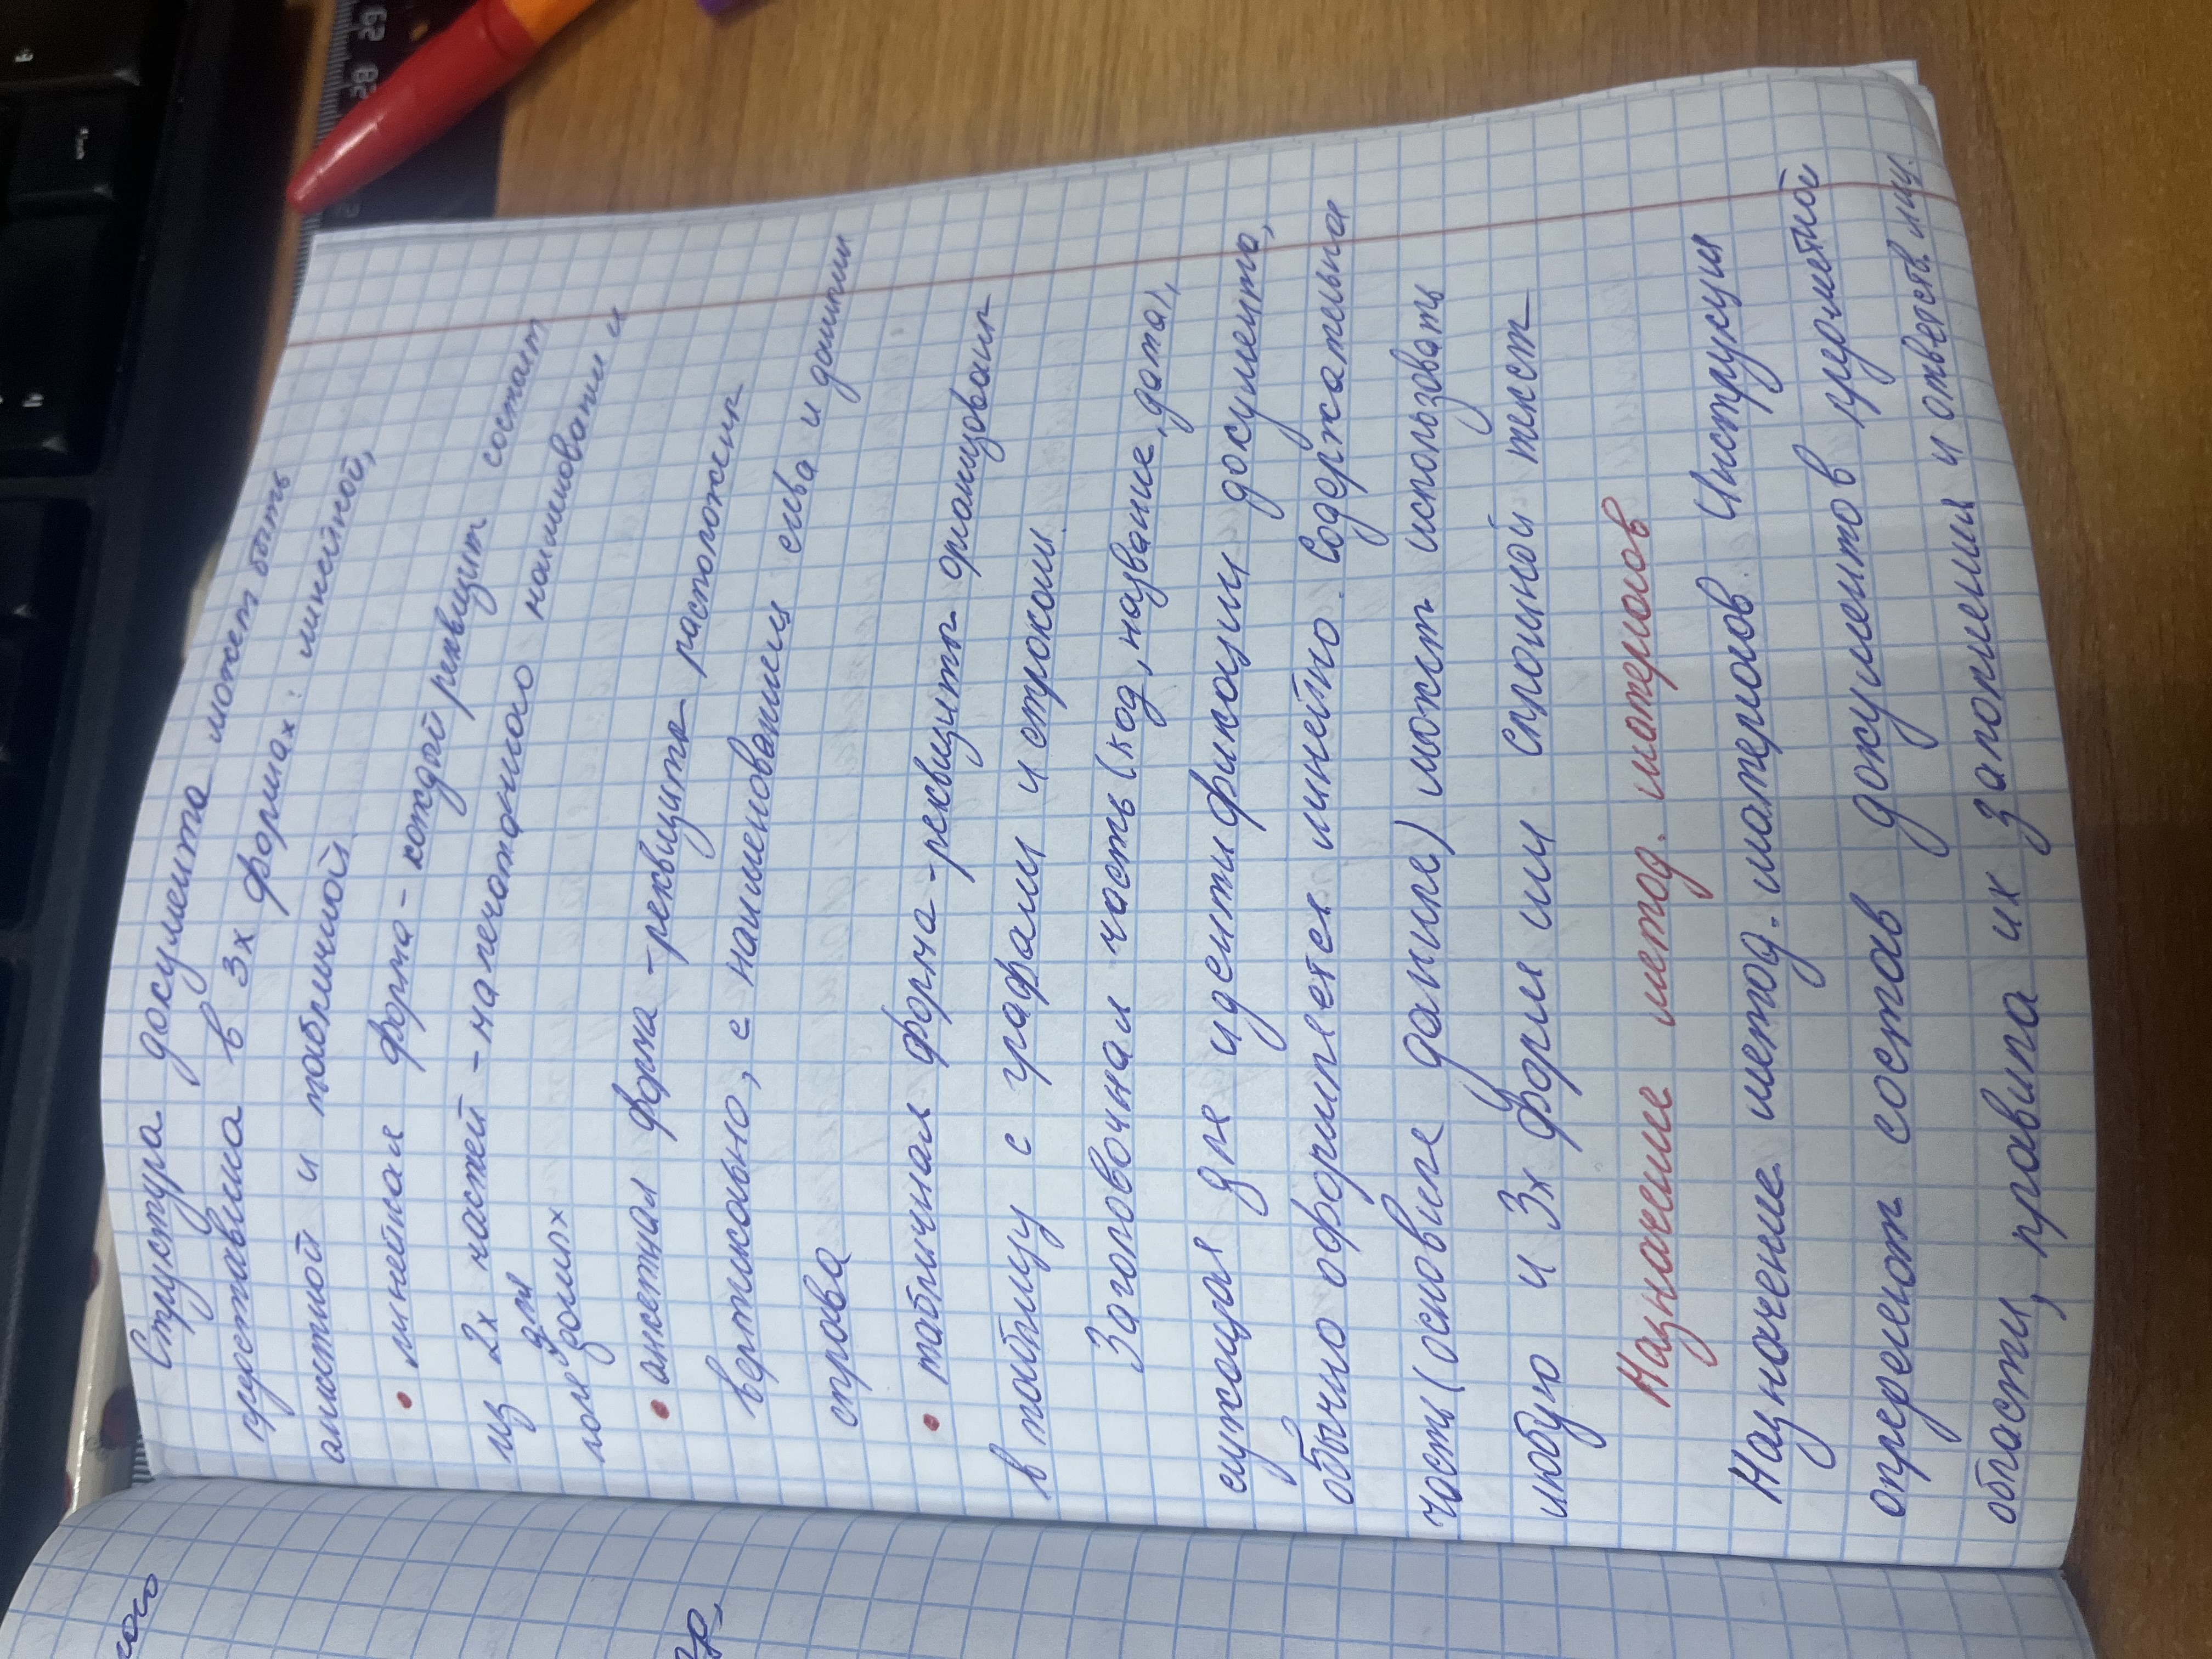 Структура документа может быть
представлена в 3х формах: линейной,
анкетной и табличной.
• линейная форма - каждой реквизит состоит
из 2х частей - напечатанного наименовани и
поле для данных
• анкетная форма - реквизиты расположен
вертикально, с наименованием слева и данными
справа
• табличная форма - реквизиты организован
в таблицу с графами и строками.
Заголовочная часть (код, название, дата),
служащая для идентификации документа,
обычно оформляется линейно. Содержательна
часть (основные данные) может использовать
любую и 3х форм или сплошной текст
Назначение метод. материалов
Назначение метод. материалов. Инструкция
определяют состав документов предметной
области, правила их заполнения и ответств. лиц.
ного